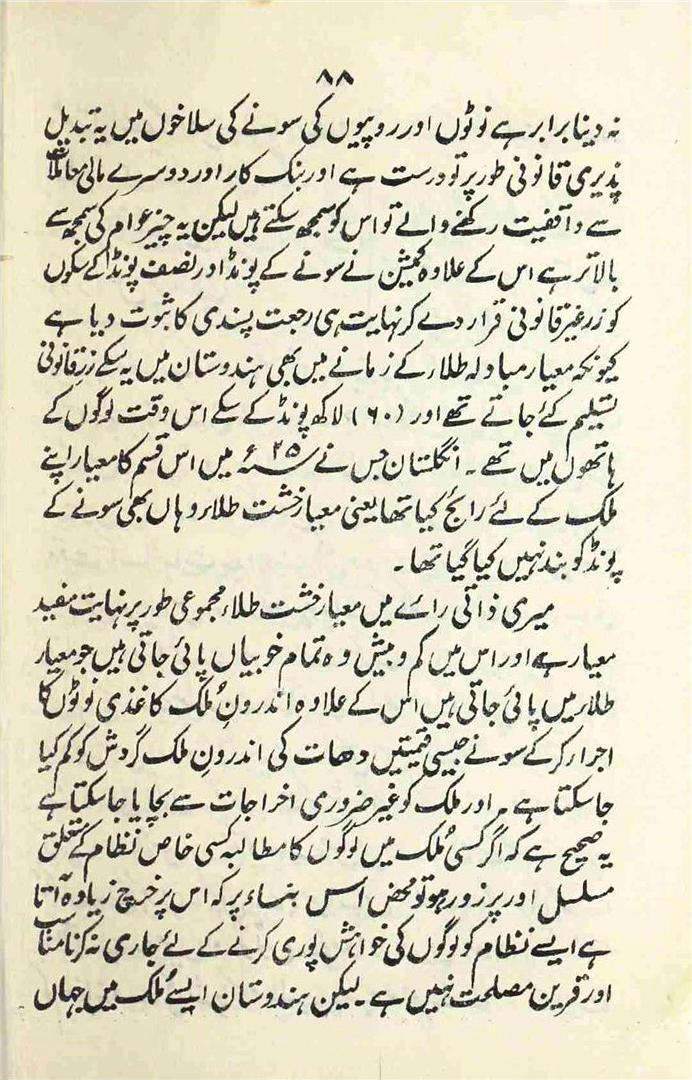 ۸۸
نہ دینا برابر ہے نوٹوں اور روپیوں کی سونے کی سلاخوں میں یہ تبدیل
پذیری قانونی طور پر تو درست ہے اور بنک کار اور دوسرے مالی معاملات
سے واقفیت رکھنے والے تو اس کو سمجھ سکتے ہیں لیکن یہ چیز عوام کی سمجھ سے
بالاتر ہے اس کے علاوہ کمیشن نے سونے کے پونڈ اور نصف پونڈ کے سکوں
کو زر غیر قانونی قرار دے کر نہایت ہی رجعت پسندی کا ثبوت دیا ہے
کیونکہ معیار مبادلہ طلاء کے زمانے میں بھی ہندوستان میں یہ سکے زر قانونی
تسلیم کئے جاتے تھے اور (۶۰) لاکھ پونڈ کے سکے اس وقت لوگوں کے
ہاتھوں میں تھے ۔ انگلستان جس نے ۲۵ء میں اس قسم کا معیار اپنے
ملک کے لئے رائج کیا تھا یعنی معیار خشت طلاء وہاں بھی سونے کے
پونڈ کو بند نہیں کیا گیا تھا ۔
میری ذاتی رائے میں معیار خشت طلاء مجموعی طور پر نہایت مفید
معیار ہے اور اس میں کم و بیش وہ تمام خوبیاں پائی جاتی ہیں جو معیار
طلاء میں پائی جاتی ہیں اس کے علاوہ اندرونِ ملک کاغذی نوٹوں کا
اجراء کر کے سونے جیسی قیمتیں دھات کی اندرونِ ملک گردش کو کم کیا
جا سکتا ہے ۔ اور ملک کو غیر ضروری اخراجات سے بچایا جا سکتا ہے
یہ صحیح ہے کہ اگر کسی مُلک میں لوگوں کا مطالبہ کسی خاص نظام کے متعلق
مسلسل اور پر زور ہو تو محض اس بناء پر کہ اس پر خرچ زیادہ آتا
ہے ایسے نظام کو لوگوں کی خواہش پوری کرنے کے لئے جاری نہ کرنا مناسب
اور قرین مصلحت نہیں ہے ۔ لیکن ہندوستان ایسے مُلک میں جہاں